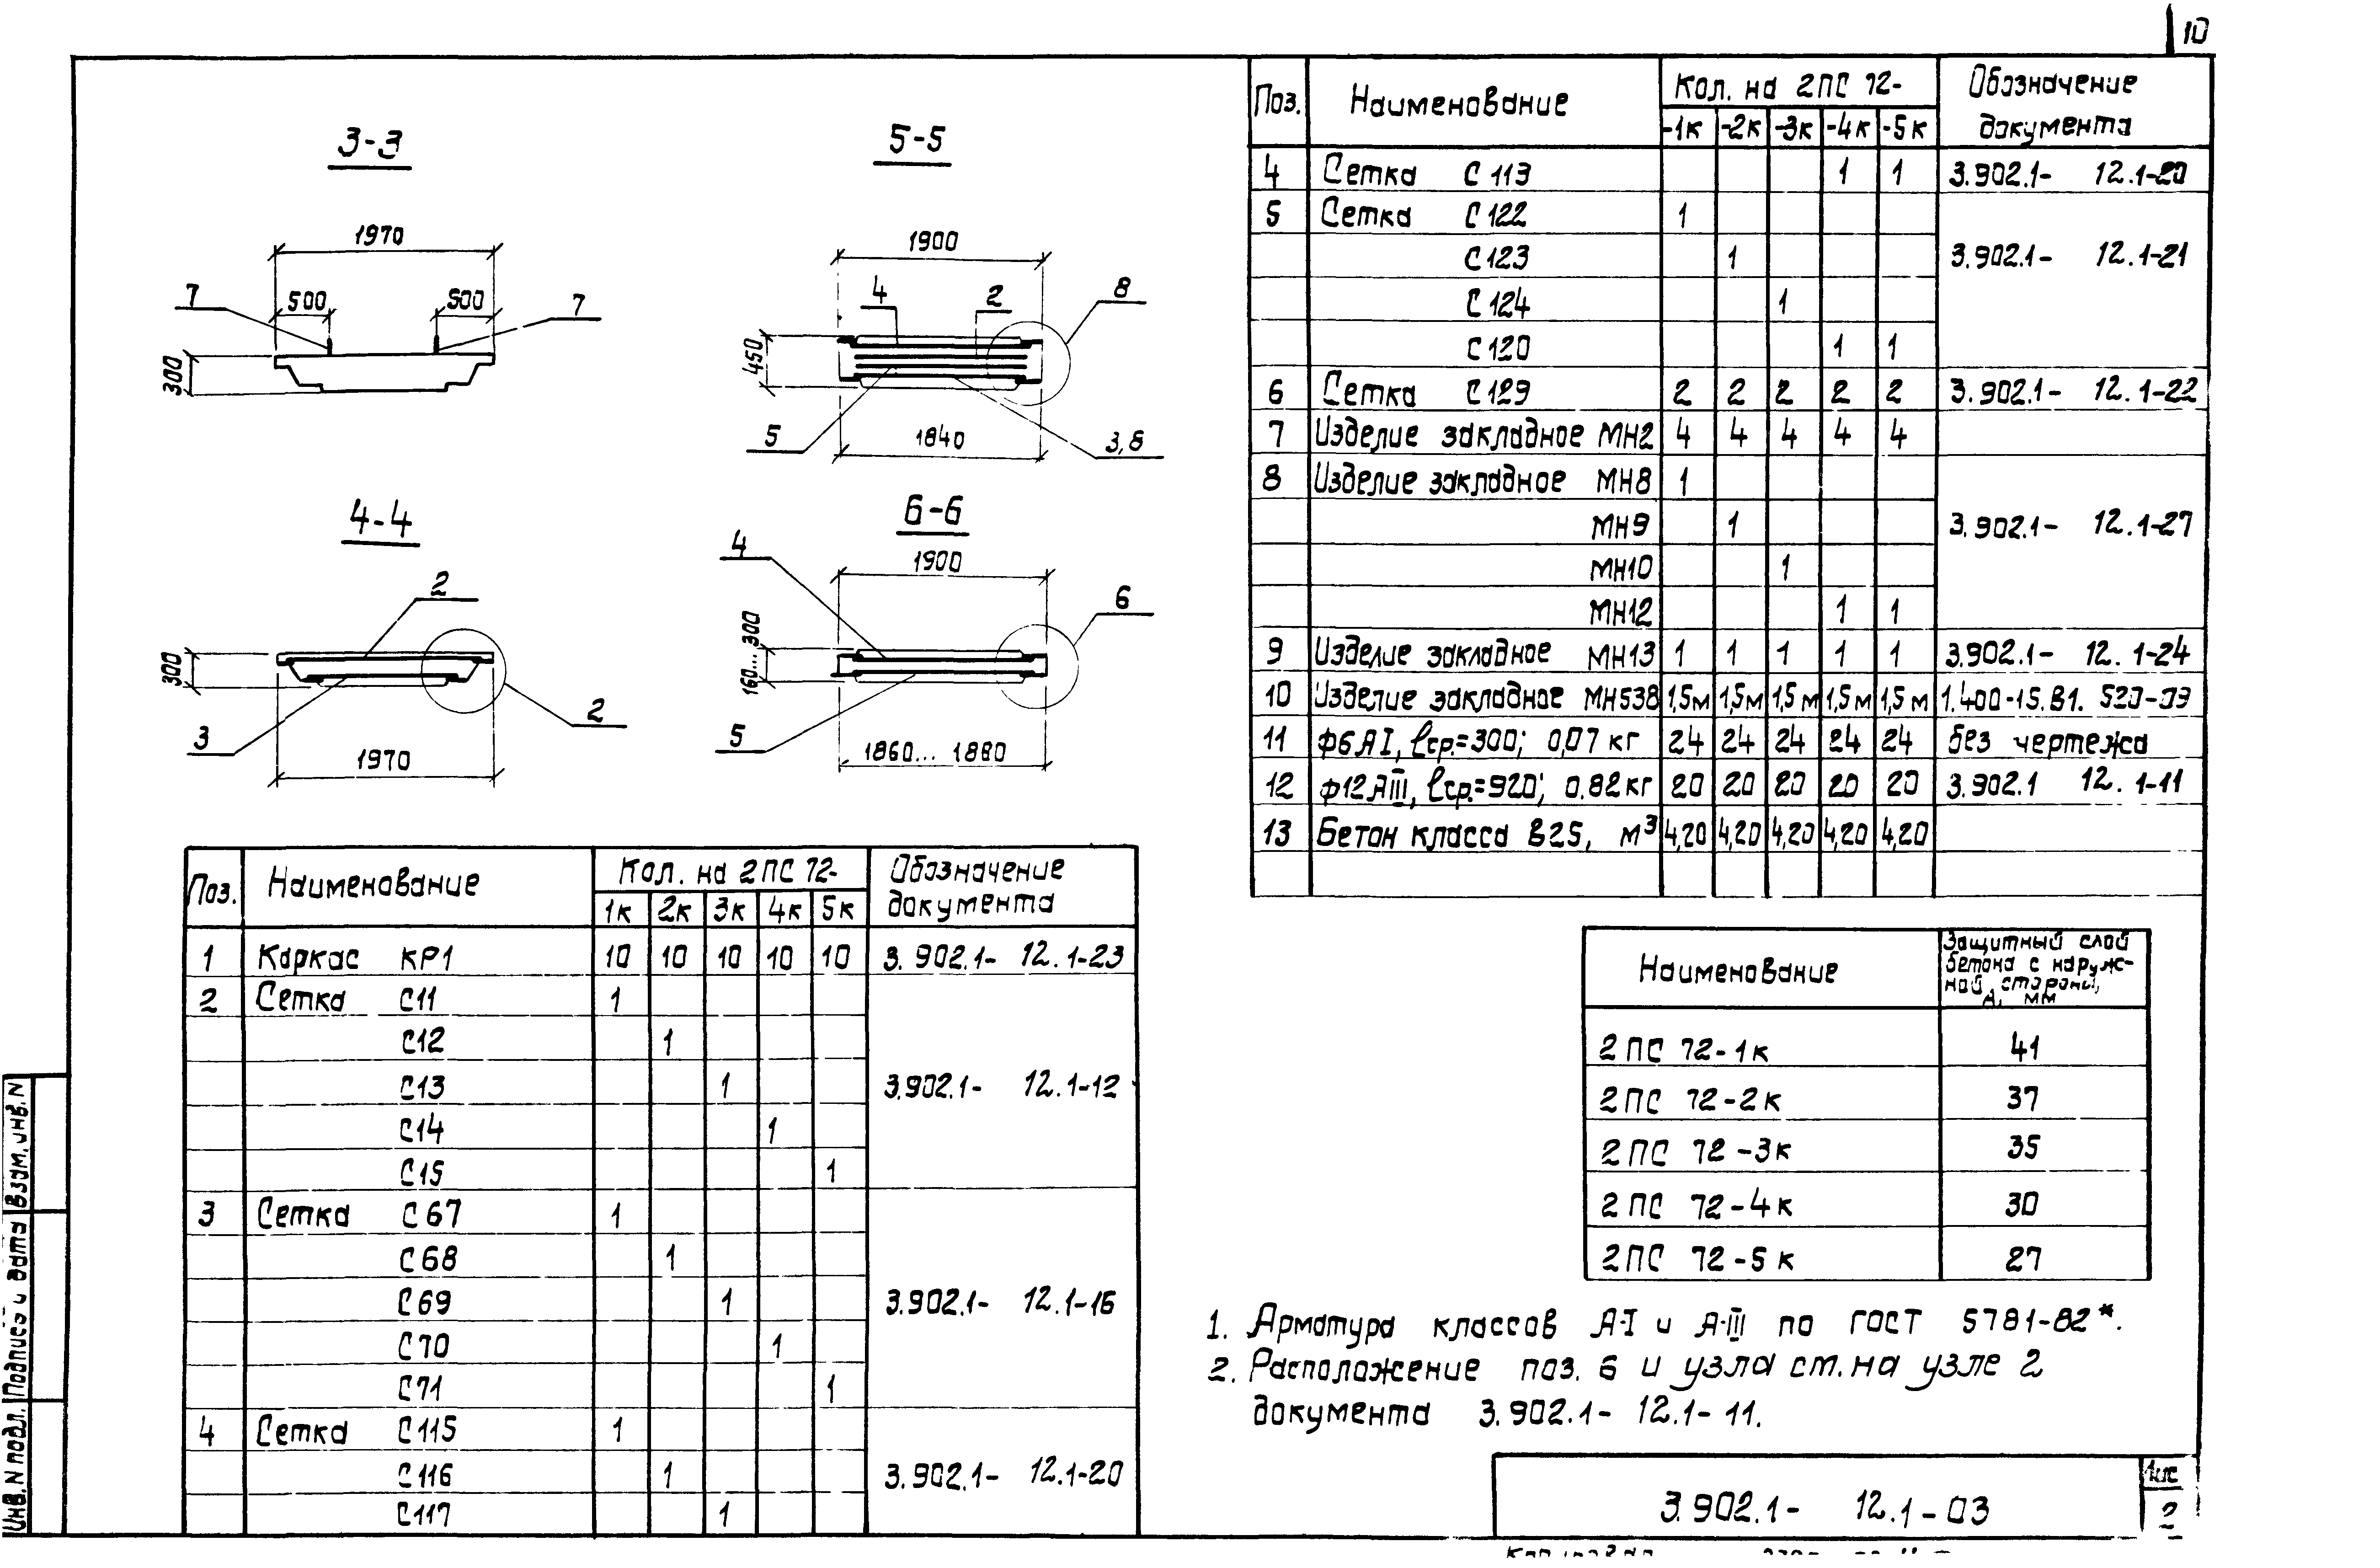 10
3-3
1970
500
500
7
7
300
5-5
1900
4
2
8
450
5
1840
3,8
4-4
2
300
2
3
1970
6-6
4
1900
6
160... 300
5
1860... 1880
Поз. Наименование Кол. на 2ПС 72- Обозначение документа
1к 2к 3к 4к 5к
1 Каркас КР1 10 10 10 10 10 3.902.1- 12.1-23
2 Сетка С11 1
С12 1
С13 1 3.902.1- 12.1-12
С14 1
С15 1
3 Сетка С67 1
С68 1
С69 1 3.902.1- 12.1-16
С70 1
С71 1
4 Сетка С115 1
С116 1 3.902.1- 12.1-20
С117 1
Поз. Наименование Кол. на 2ПС 72- Обозначение документа
-1к -2к -3к -4к -5к
4 Сетка С113 1 1 3.902.1- 12.1-20
5 Сетка С122 1
С123 1 3.902.1- 12.1-21
С124 1
С120 1 1
6 Сетка С129 2 2 2 2 2 3.902.1- 12.1-22
7 Изделие закладное МН2 4 4 4 4 4
8 Изделие закладное МН8 1
МН9 1 3.902.1- 12.1-27
МН10 1
МН12 1 1
9 Изделие закладное МН13 1 1 1 1 1 3.902.1- 12.1-24
10 Изделие закладное МН538 1,5м 1,5м 1,5м 1,5м 1,5м 1.400-15.В1. 520-09
11 ф6АI, lср.=300; 0,07 кг 24 24 24 24 24 без чертежа
12 ф12АIII, lср.=920; 0.82кг 20 20 20 20 20 3.902.1 12.1-11
13 Бетон класса В25, м³ 4,20 4,20 4,20 4,20 4,20
Наименование Защитный слой
бетона с наруж-
ной стороны,
А, мм
2ПС 72-1к 41
2ПС 72-2к 37
2ПС 72-3к 35
2ПС 72-4к 30
2ПС 72-5к 27
1. Арматура классов А-I и А-III по ГОСТ 5781-82*.
2. Расположение поз. 6 и узла см. на узле 2
документа 3.902.1- 12.1-11.
3.902.1- 12.1-03
Лис
2
Инв. N подл. Подпись и дата Взам. инв. N